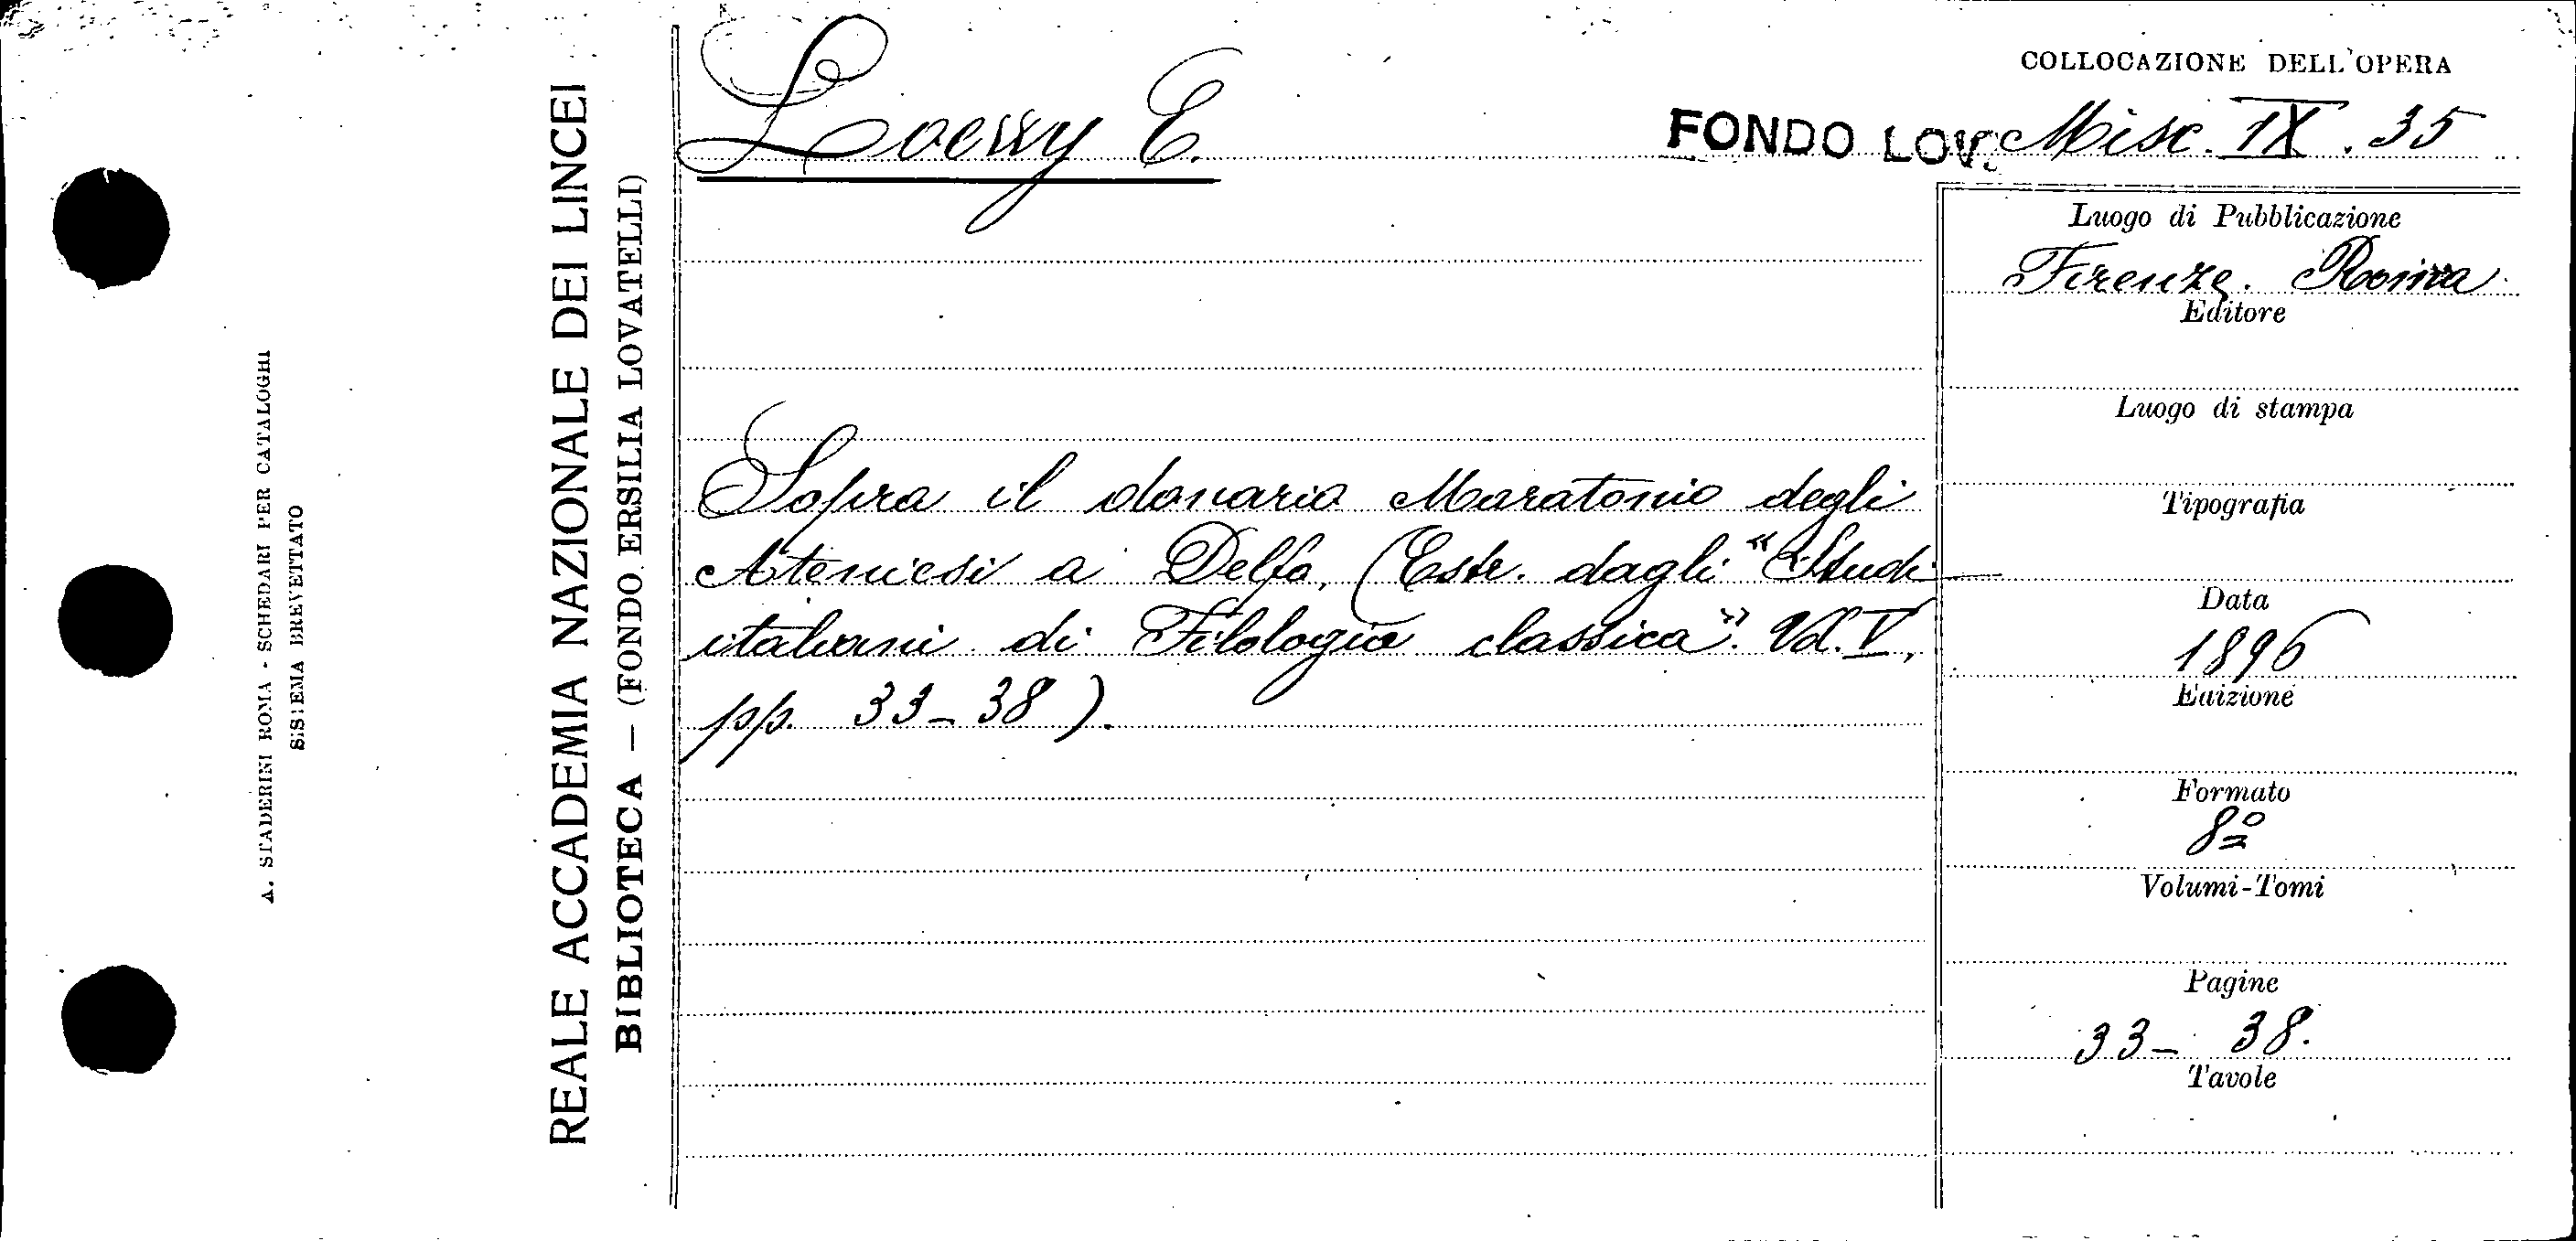 A. STADERINI ROMA - SCHEDARI PER CATALOGHI
SISTEMA BREVETTATO
REALE ACCADEMIA NAZIONALE DEI LINCEI
BIBLIOTECA — (FONDO ERSILIA LOVATELLI)
Loewy E.
COLLOCAZIONE DELL'OPERA
FONDO LOV. Misc. IX. 35
Sopra il donario Maratonio degli
Ateniesi a Delfo, (Estr. dagli "Studi
italiani di Filologia classica". Vol. V,
pp. 33-38).
Luogo di Pubblicazione
Firenze. Roma
Editore
Luogo di stampa
Tipografia
Data
1896
Edizione
Formato
8º
Volumi-Tomi
Pagine
33-38.
Tavole